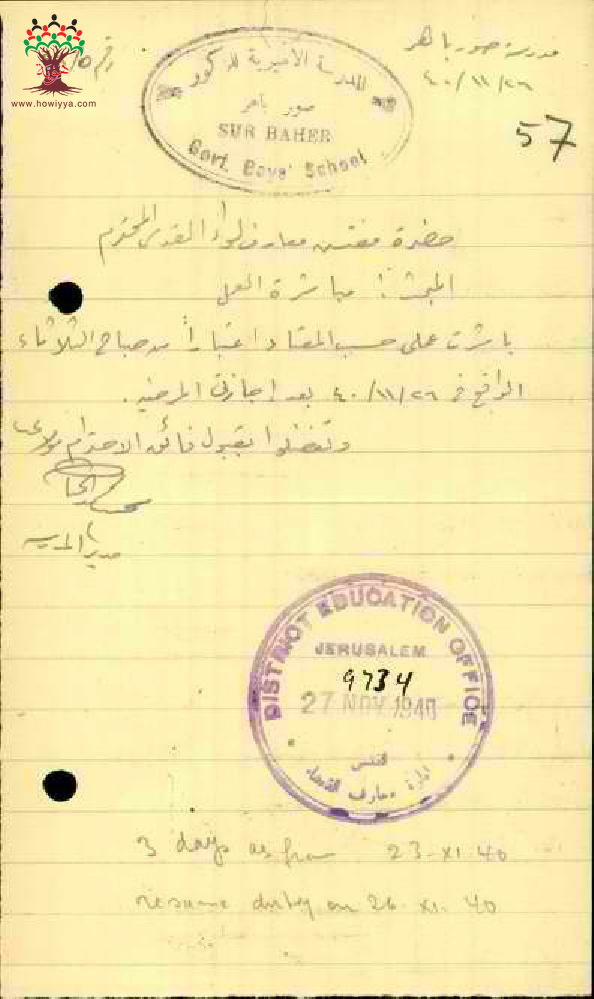 www.howiyya.com
مدرسة صور باهر
٤٠/١١/٢٦
57
المدرسة الأميرية للذكور
صور باهر
SUR BAHER
Govt. Boys' School
حضرة مفتش معارف لواء القدس المحترم
المبحث: مباشرة العمل
باشرت عملي حسب المعتاد اعتباراً من صباح الثلاثاء
الواقع في ٤٠/١١/٢٦ بعد إجازتي المرضية.
وتفضلوا بقبول فائق الاحترام
مدير المدرسة
DISTRICT EDUCATION OFFICE
JERUSALEM
9734
27 NOV 1940
القدس
ادارة معارف القضاء
3 days as from 23-XI-40
resume duty on 26-XI-40